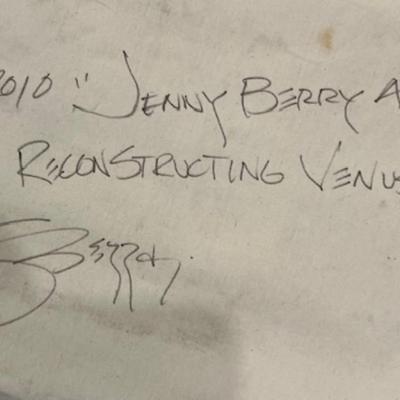 2010 "JENNY BERRY A
RECONSTRUCTING VENUS
Berry